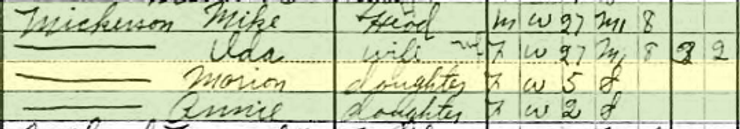 Mickerson Mike Head M W 27 M1 8
Ida wife F W 27 M1 8 2 2
Marion daughter F W 5 S
Annie daughter F W 2 S